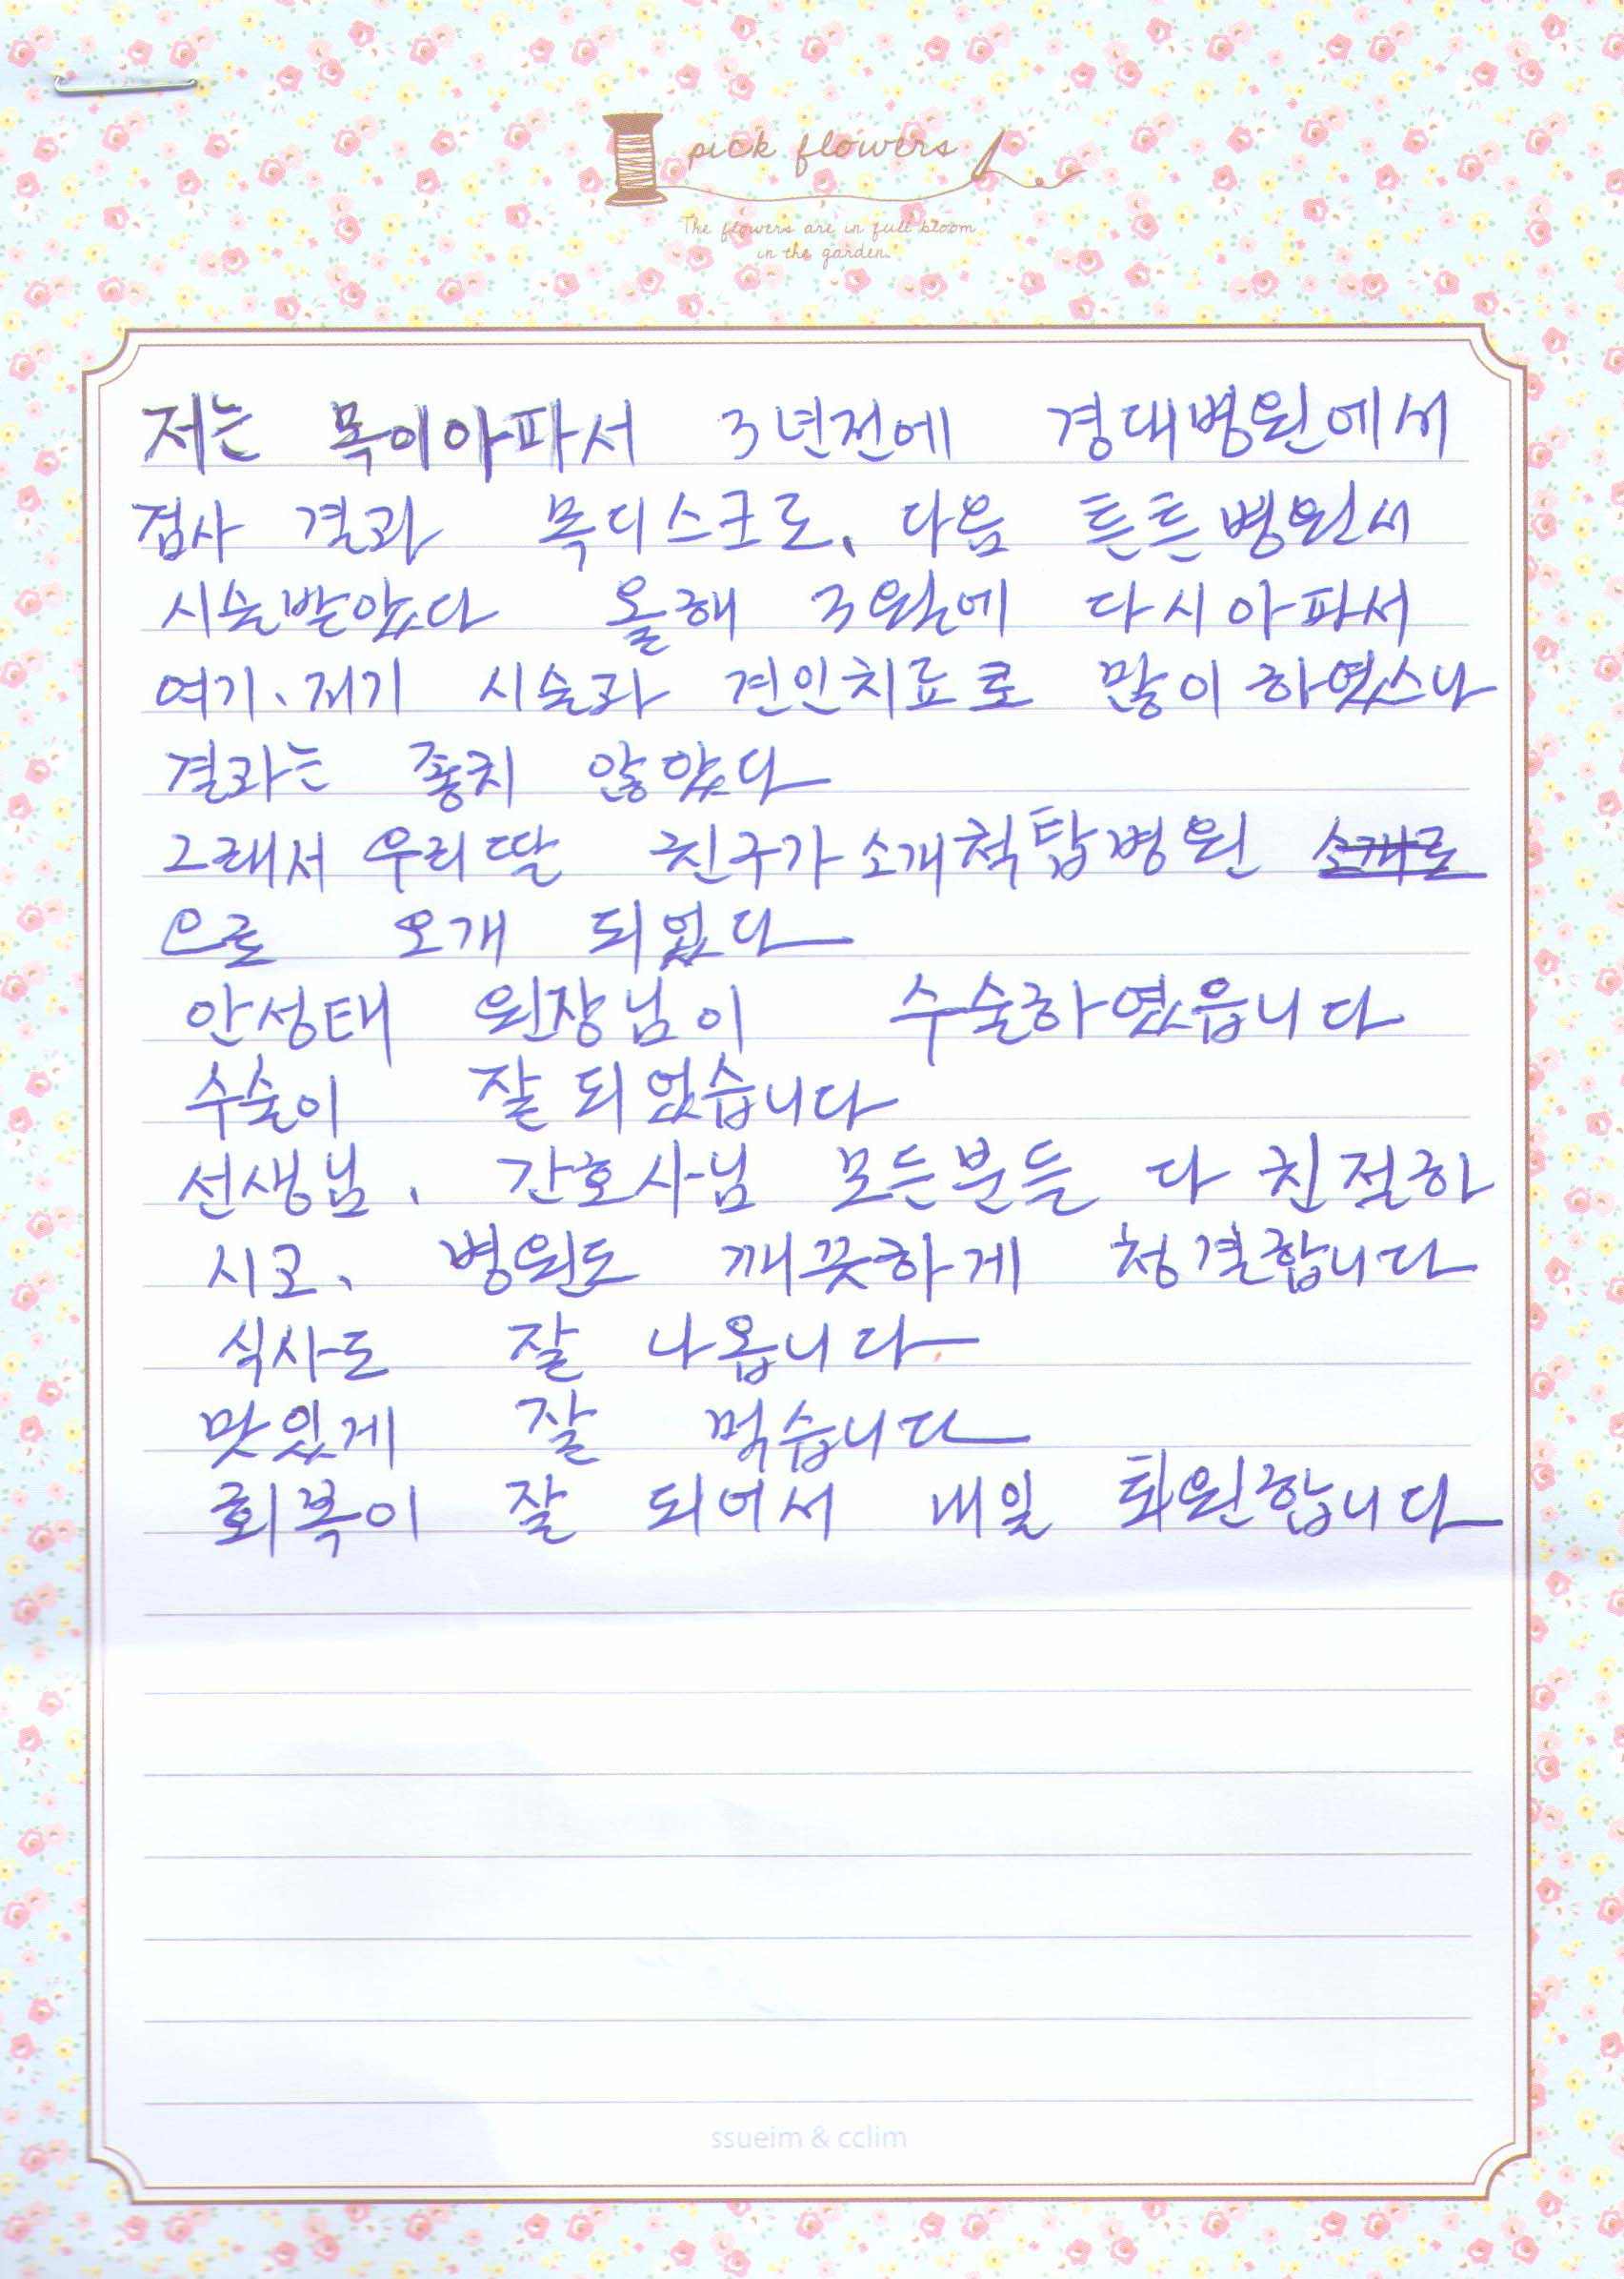 pick flowers
The flowers are in full bloom
in the garden.
저는 목이아파서 3년전에 경대병원에서
검사 결과 목디스크로, 다음 튼튼병원서
시술받았다 올해 3월에 다시아파서
여기、저기 시술과 견인치료로 많이하였스나
결과는 좋치 않았다
그래서 우리딸 친구가 소개척탑병원 소개로
으로 오개 되었다
안성태 원장님이 수술하였읍니다
수술이 잘되었습니다
선생님, 간호사님 모든분들 다 친절하
시고、 병원도 깨끗하게 청결합니다
식사도 잘 나옵니다
맛있게 잘 먹습니다
회복이 잘 되어서 내일 퇴원합니다
ssueim & cclim